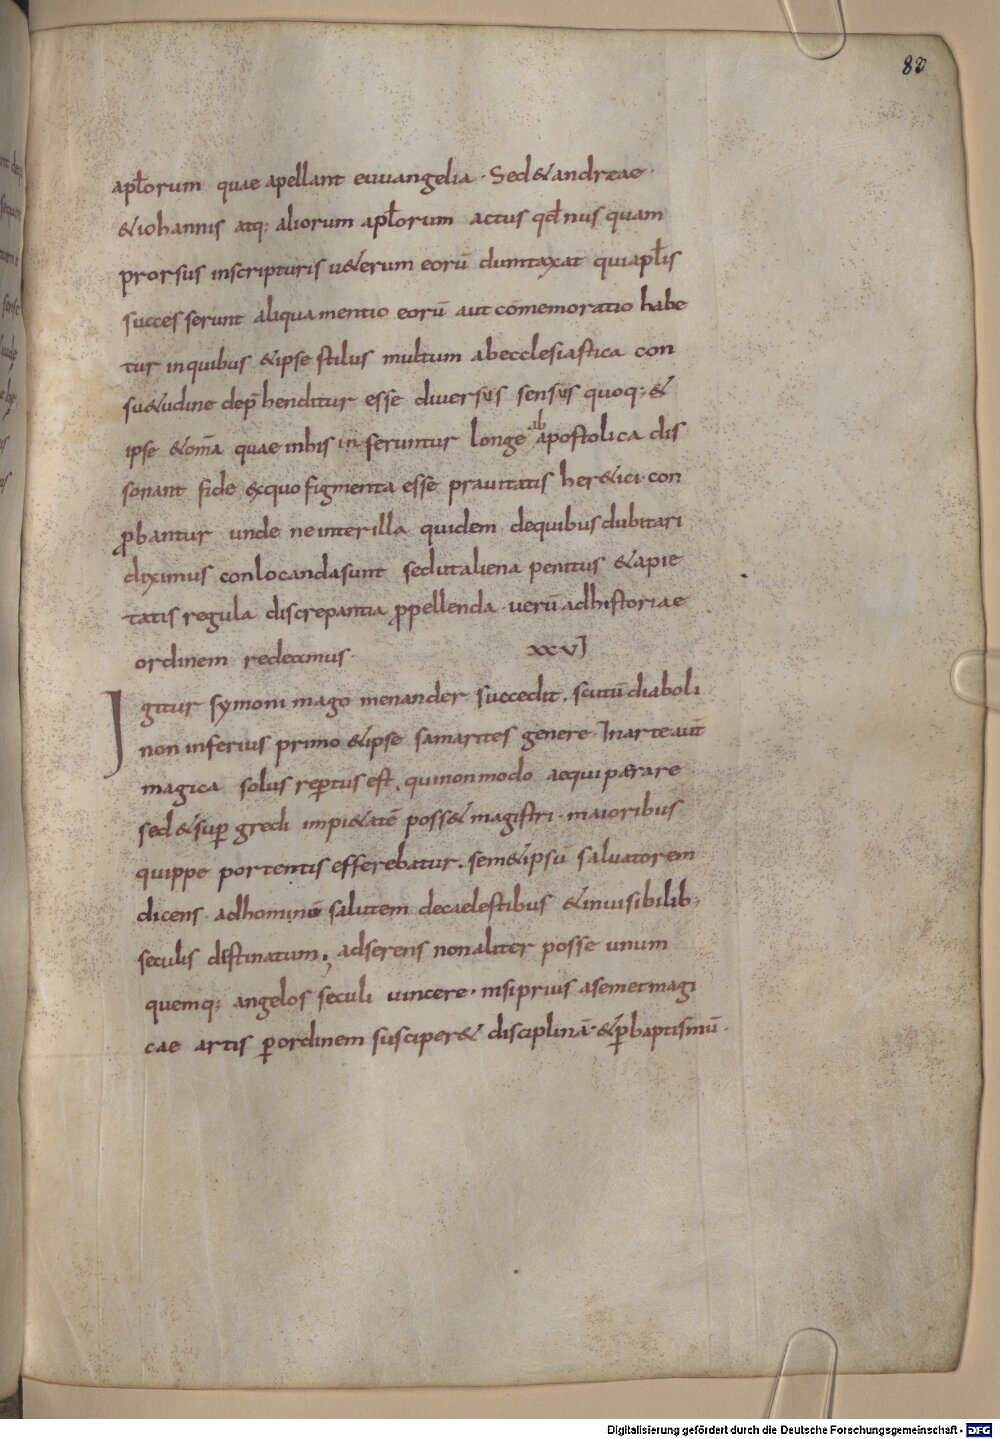 80
apl̄orum quae apellant euuangelia · Sed & andreae ·
& iohannis atq; aliorum apl̄orum actus qđ nusquam
prorsus inscripturis u&erum eorū dumtaxat quiapl̄is
successerunt aliqua mentio eorū aut cōmemoratio habe
tur inquibus & ipse stilus multum abecclesiastica con
su&udine dep̄henditur esse diversus sensus quoq; &
ipse & om̄a quae inhis inferuntur longe ab apostolica dis
sonant fide excquo figmenta esse prauitatis her&ici con
ꝓbantur unde neinter illa quidem dequibus dubitari
diximus conlocanda sunt sed ut aliena penitus & apie
tatis regula discrepantia ꝓpellenda · uerū adhistoriae
ordinem redeamus · xxvJ
Igitur symoni mago menander succedit · scutū diaboli
non inferius primo & ipse samarites genere · Inarte aut̄
magica solus reꝑtus est, qui nonmodo aequiperare
sed & suꝑgredi impi&atē poss& magistri · maioribus
quippe portentis efferebatur · sem&ipsū saluatorem
dicens · adhominū salutem decaelestibus & inuisibilib;
seculis destinatum; adserens nonaliter posse unum
quemq; angelos seculi uincere · nisiprius asemetmagi
cae artis ꝑordinem susciper& disciplinā · & ꝑbaptismū ·
Digitalisierung gefördert durch die Deutsche Forschungsgemeinschaft - DFG